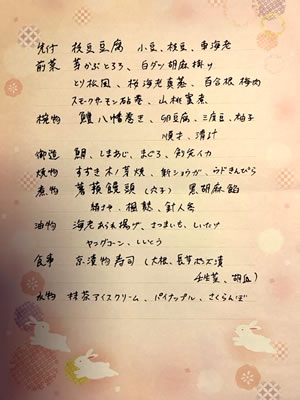 先付 枝豆豆腐 小豆、枝豆、車海老
前菜 芋かぶとろろ、白ダツ胡麻掛け
とり松風、桜海老真薯、百合根梅肉
スモークサーモン砧巻、山桃蜜煮
椀物 鰻八幡巻き、卵豆腐、三度豆、柚子
順才、清汁
御造 鯛、しまあじ、まぐろ、剣先イカ
焼物 すずき木ノ芽焼、新ショウガ、ウドきんぴら
煮物 蓮根饅頭(穴子) 黒胡麻餡
絹さや、楓麩、針人参
油物 海老あられ揚げ、さつまいも、しいたけ
ヤングコーン、ししとう
食事 京漬物寿司(大根、長芋ポンズ漬
壬生菜、胡瓜)
水物 抹茶アイスクリーム、パイナップル、さくらんぼ